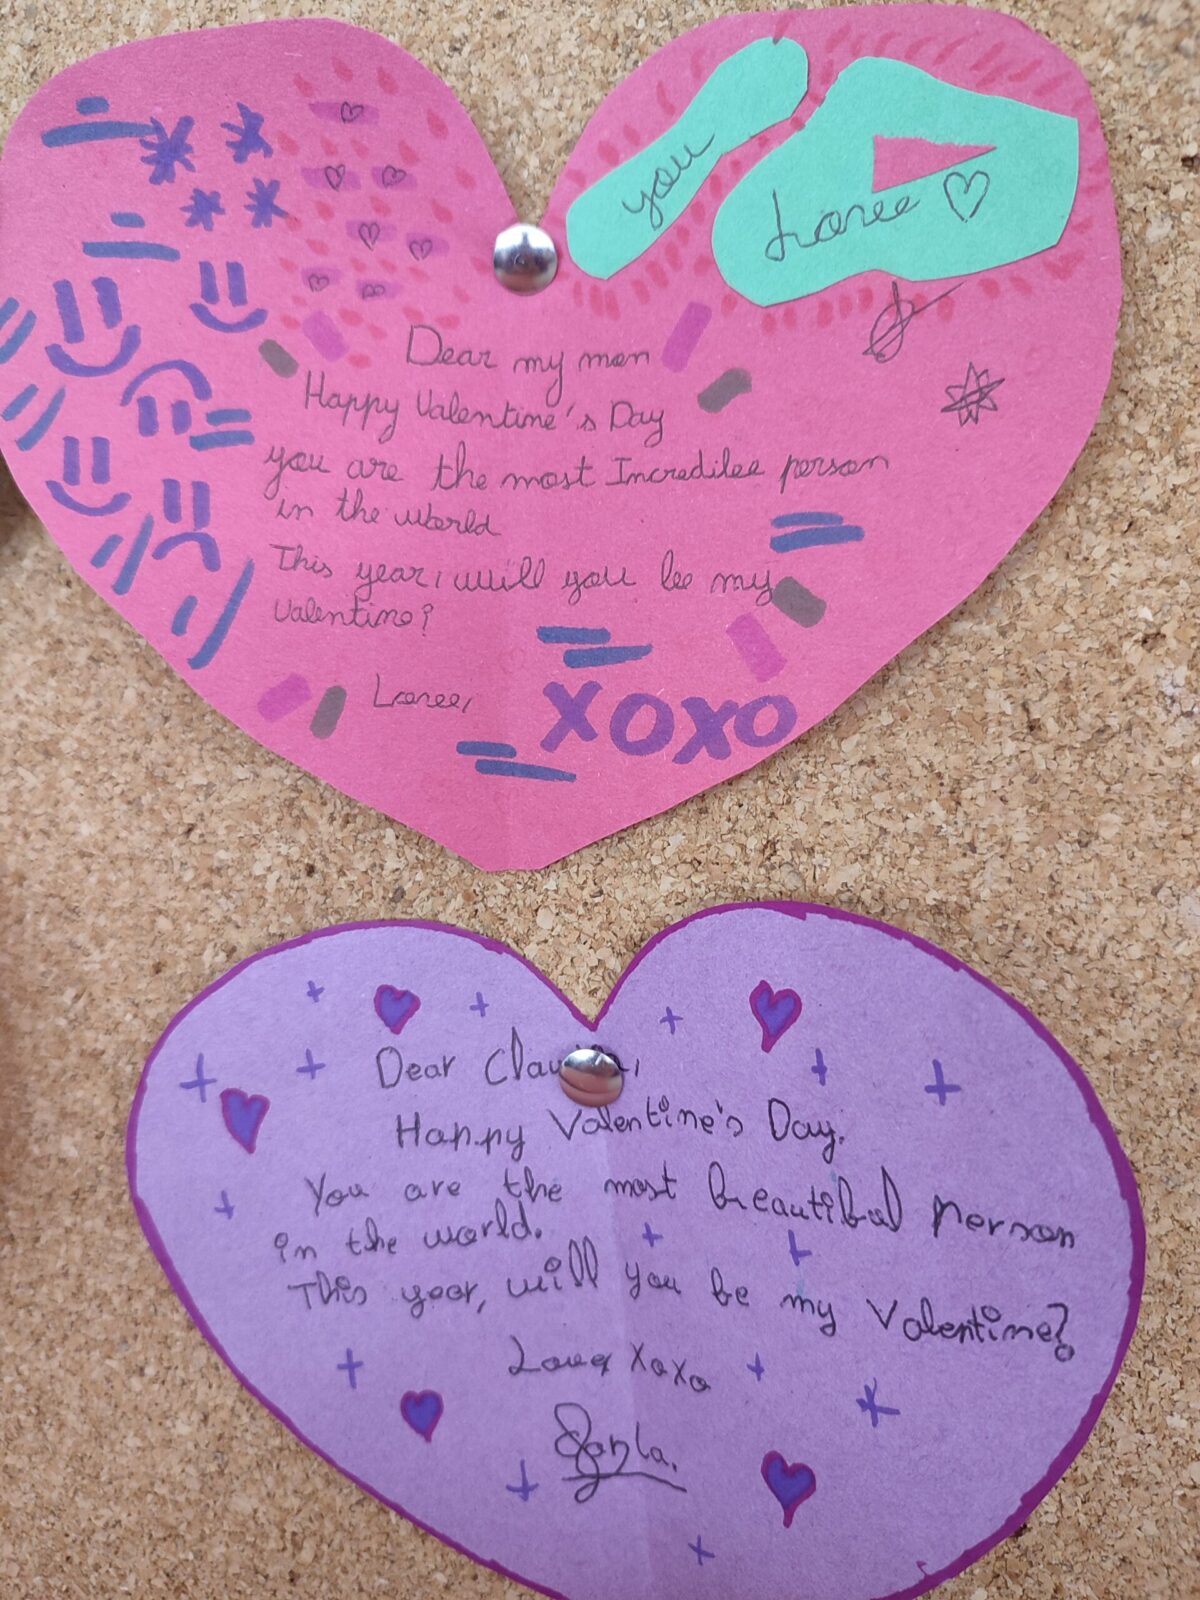 you
Lovee
Dear my man
Happy Valentine's Day
you are the most Incredilee person
in the world
This year, will you be my
Valentine?
Lovee,
XOXO
Dear
Happy Valentine's Day.
You are the most breautibal person
in the world.
This year, will you be my Valentine?
Love, XoXo